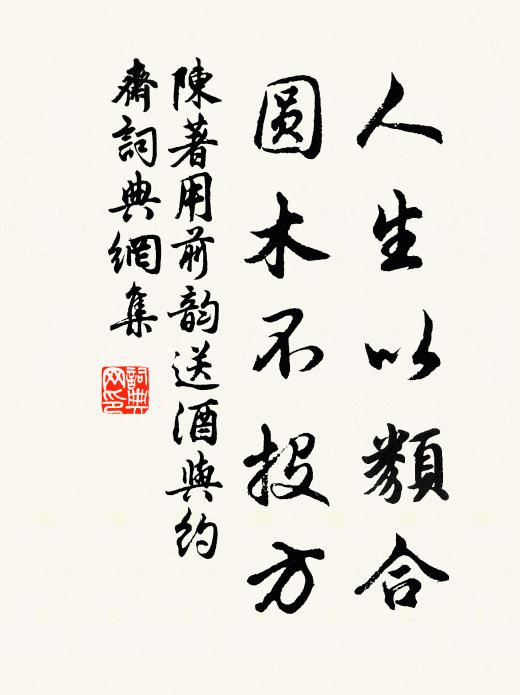 人生以類合
圓木不投方
陳著用前韵送酒與約
齋詞典網集
詞典
网印